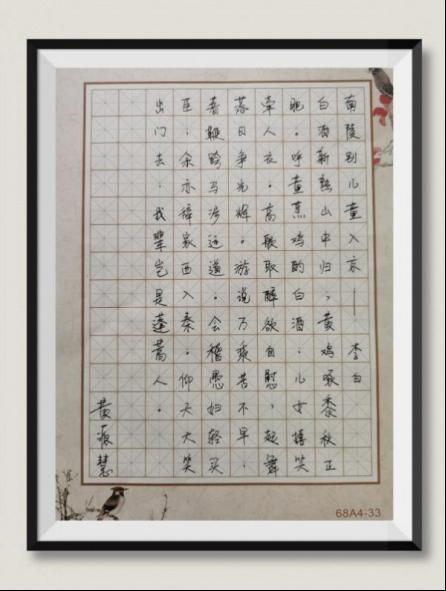 南陵别儿童入京——李白
白酒新熟山中归，黄鸡啄黍秋正
肥。呼童烹鸡酌白酒，儿女嬉笑
牵人衣。高歌取醉欲自慰，起舞
落日争光辉。游说万乘苦不早，
着鞭跨马涉远道。会稽愚妇轻买
臣，余亦辞家西入秦。仰天大笑
出门去，我辈岂是蓬蒿人。
黄慧
68A4-33